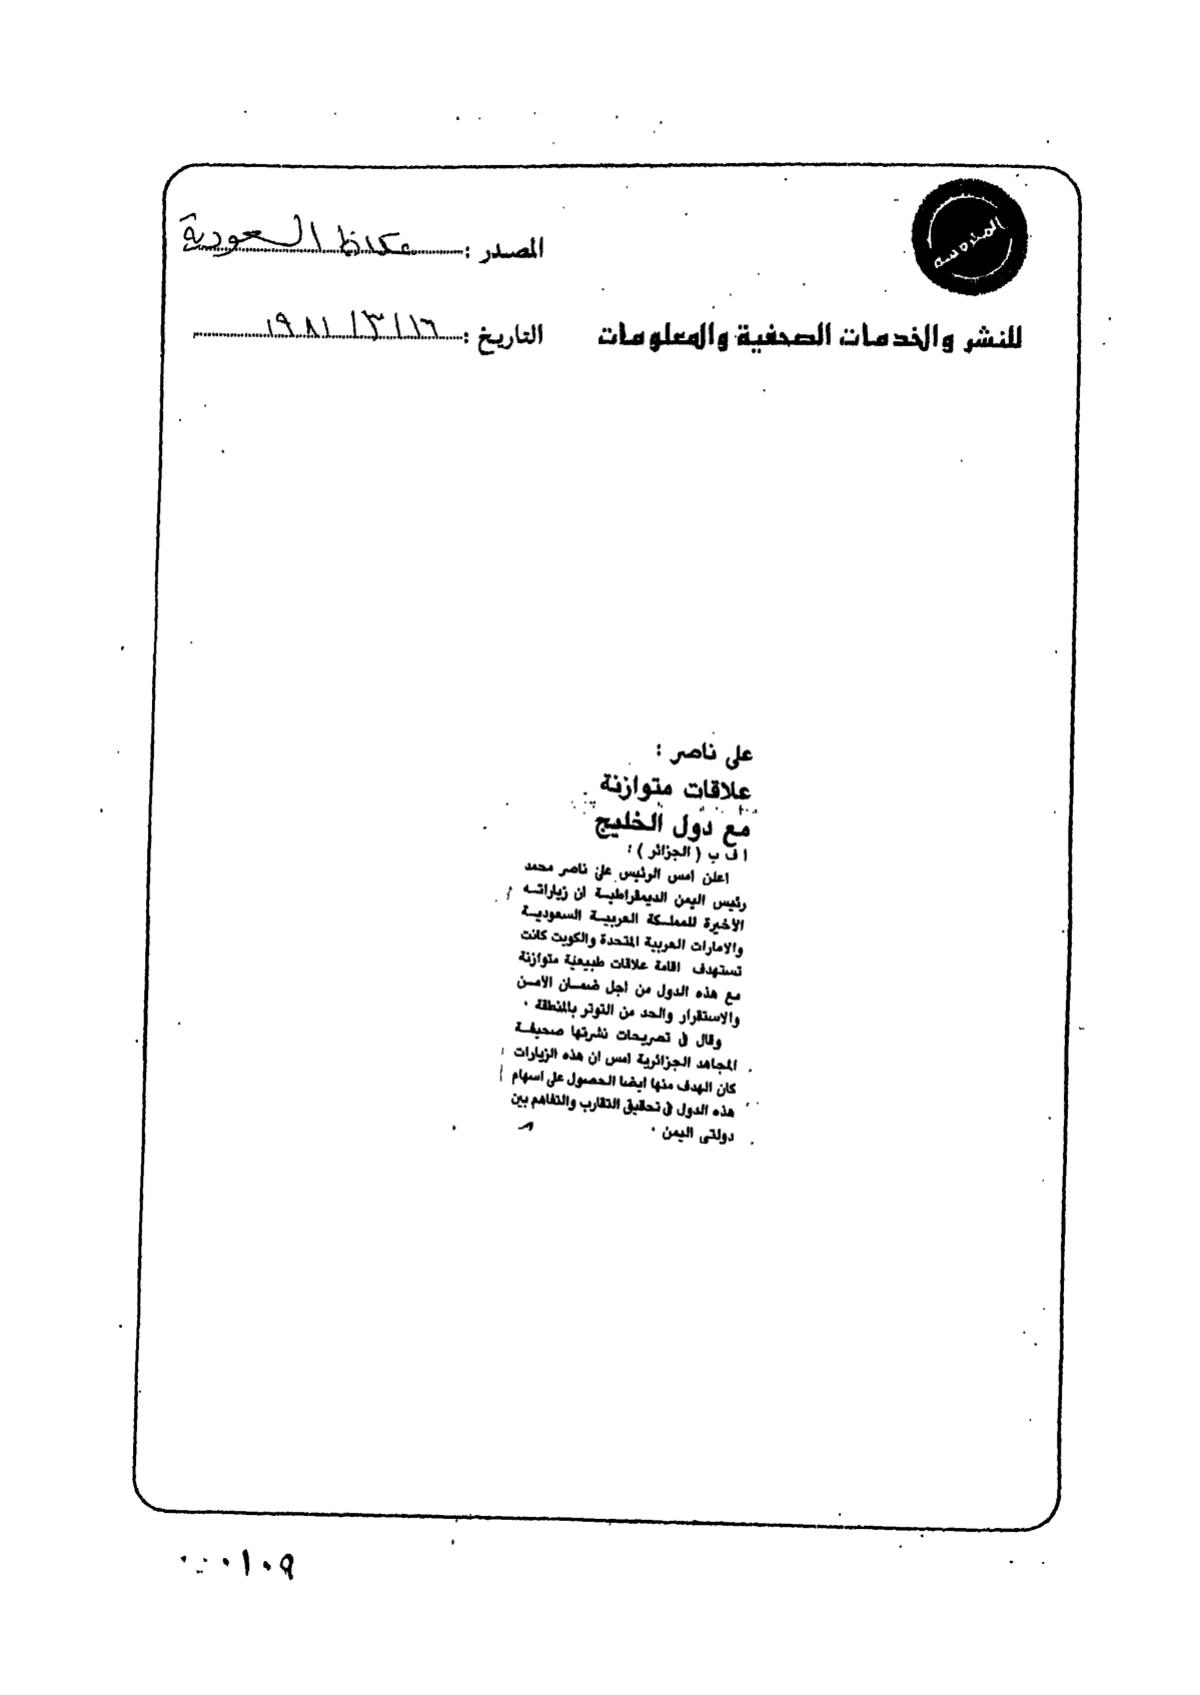 المصدر : عكاظ السعودية
للنشر والخدمات الصحفية والمعلومات
التاريخ : ١٦/٣/١٩٨١
على ناصر :
علاقات متوازنة
مع دول الخليج
ا ف ب ( الجزائر ) :
اعلن امس الرئيس على ناصر محمد
رئيس اليمن الديمقراطية ان زياراته
الأخيرة للمملكة العربية السعودية
والامارات العربية المتحدة والكويت كانت
تستهدف اقامة علاقات طبيعية متوازنة
مع هذه الدول من اجل ضمان الأمن
والاستقرار والحد من التوتر بالمنطقة .
وقال فى تصريحات نشرتها صحيفة
المجاهد الجزائرية امس ان هذه الزيارات
كان الهدف منها ايضا الحصول على اسهام
هذه الدول فى تحقيق التقارب والتفاهم بين
دولتى اليمن .